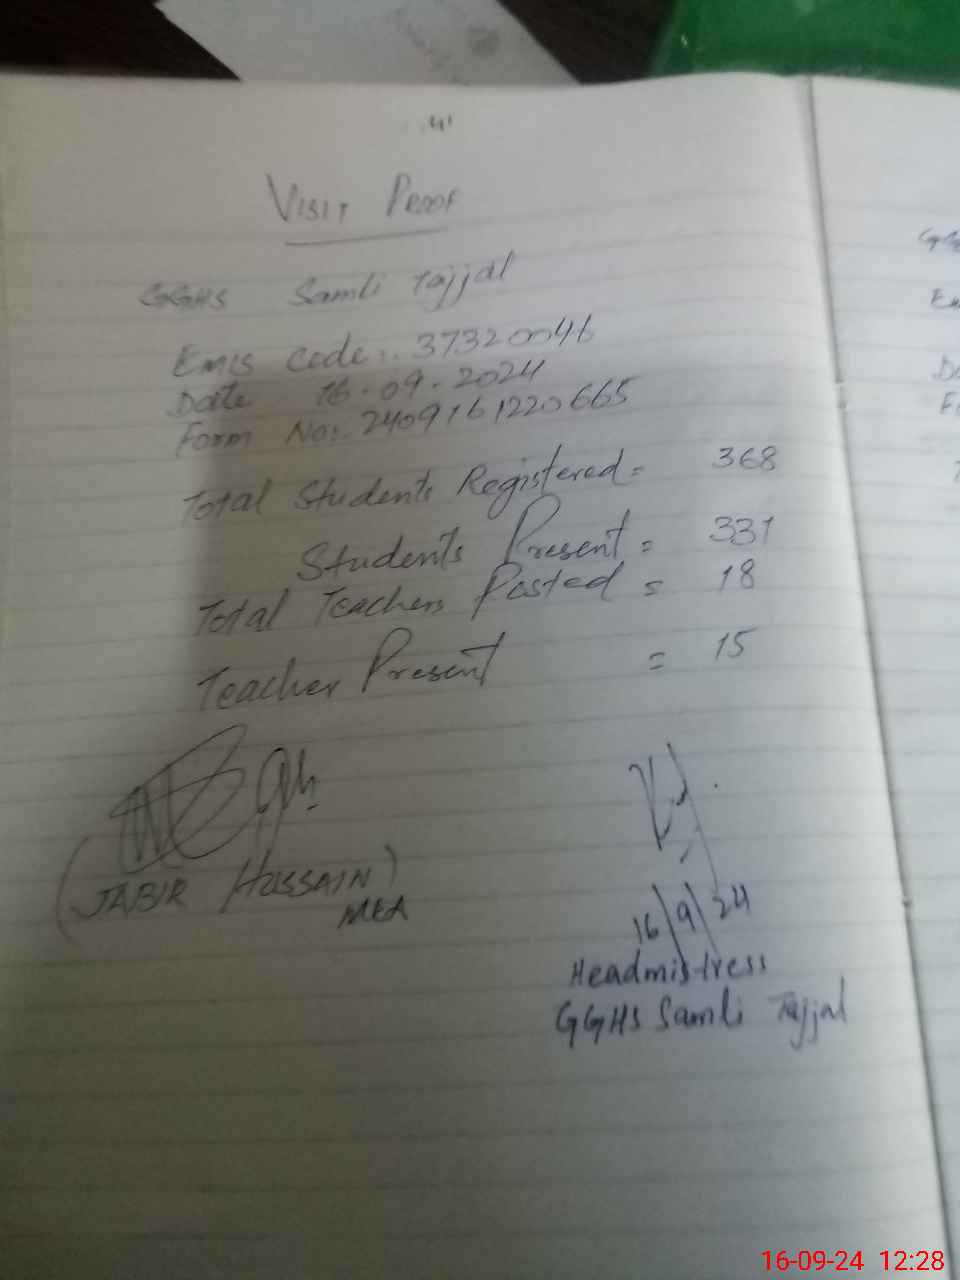 41
VISIT PROOF
GGHS Samli Tajjal
Emis Code:. 37320046
Date 16.09.2024
Form No:. 2409161220665
Total Students Registered = 368
Students Present = 331
Total Teachers Posted = 18
Teacher Present = 15
(JABIR HUSSAIN)
MEA
16/9/24
Headmistress
GGHS Samli Tajjal
16-09-24 12:28